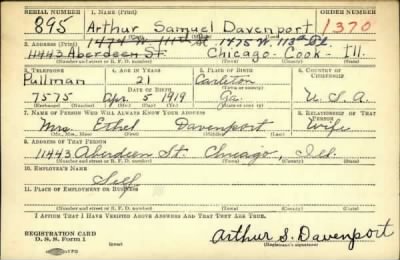 SERIAL NUMBER 1. NAME (Print) ORDER NUMBER
895 Arthur Samuel Davenport 1370
1474 W. 111th St 1475 W. 113 Pl.
2. ADDRESS (Print)
11443 Aberdeen St. Chicago - Cook - Ill.
(Town) (County) (State)
3. TELEPHONE 4. AGE IN YEARS 5. PLACE OF BIRTH 6. COUNTRY OF CITIZENSHIP
Pullman 21 Carleton
DATE OF BIRTH
7575 Apr. 5 1919 Ga. U.S.A.
(Exchange) (Number) (Mo.) (Day) (Yr.) (State or country)
7. NAME OF PERSON WHO WILL ALWAYS KNOW YOUR ADDRESS 8. RELATIONSHIP OF THAT PERSON
Mrs. Ethel Davenport Wife
(Mr., Mrs., Miss) (First) (Middle) (Last)
9. ADDRESS OF THAT PERSON
11443 Aberdeen St. Chicago, Ill.
(Number and street or R. F. D. number) (Town) (County) (State)
10. EMPLOYER'S NAME
Self
11. PLACE OF EMPLOYMENT OR BUSINESS
(Number and street or R. F. D. number) (Town) (County) (State)
I AFFIRM THAT I HAVE VERIFIED ABOVE ANSWERS AND THAT THEY ARE TRUE.
REGISTRATION CARD
D. S. S. Form 1 Arthur S. Davenport
(Registrant's signature)